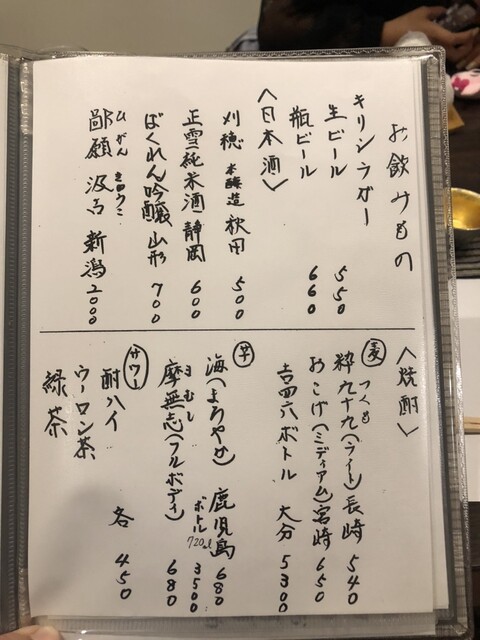 お飲みもの
キリンラガー
生ビール 550
瓶ビール 660
〈日本酒〉
刈穂 本醸造 秋田 500
正雪純米酒 静岡 600
ばくれん吟醸 山形 700
ひがん
鄙願 汲古 新潟 2000
〈焼酎〉
麦
つくも
粋九十九(ライト)長崎 540
おこげ(ミディアム)宮崎 650
吉四六ボトル 大分 5300
芋
海(まろやか) 鹿児島 680
ボトル 720ml 3500
まむし
摩無志(フルボディ) 680
サワー
酎ハイ
ウーロン茶 各 450
緑茶